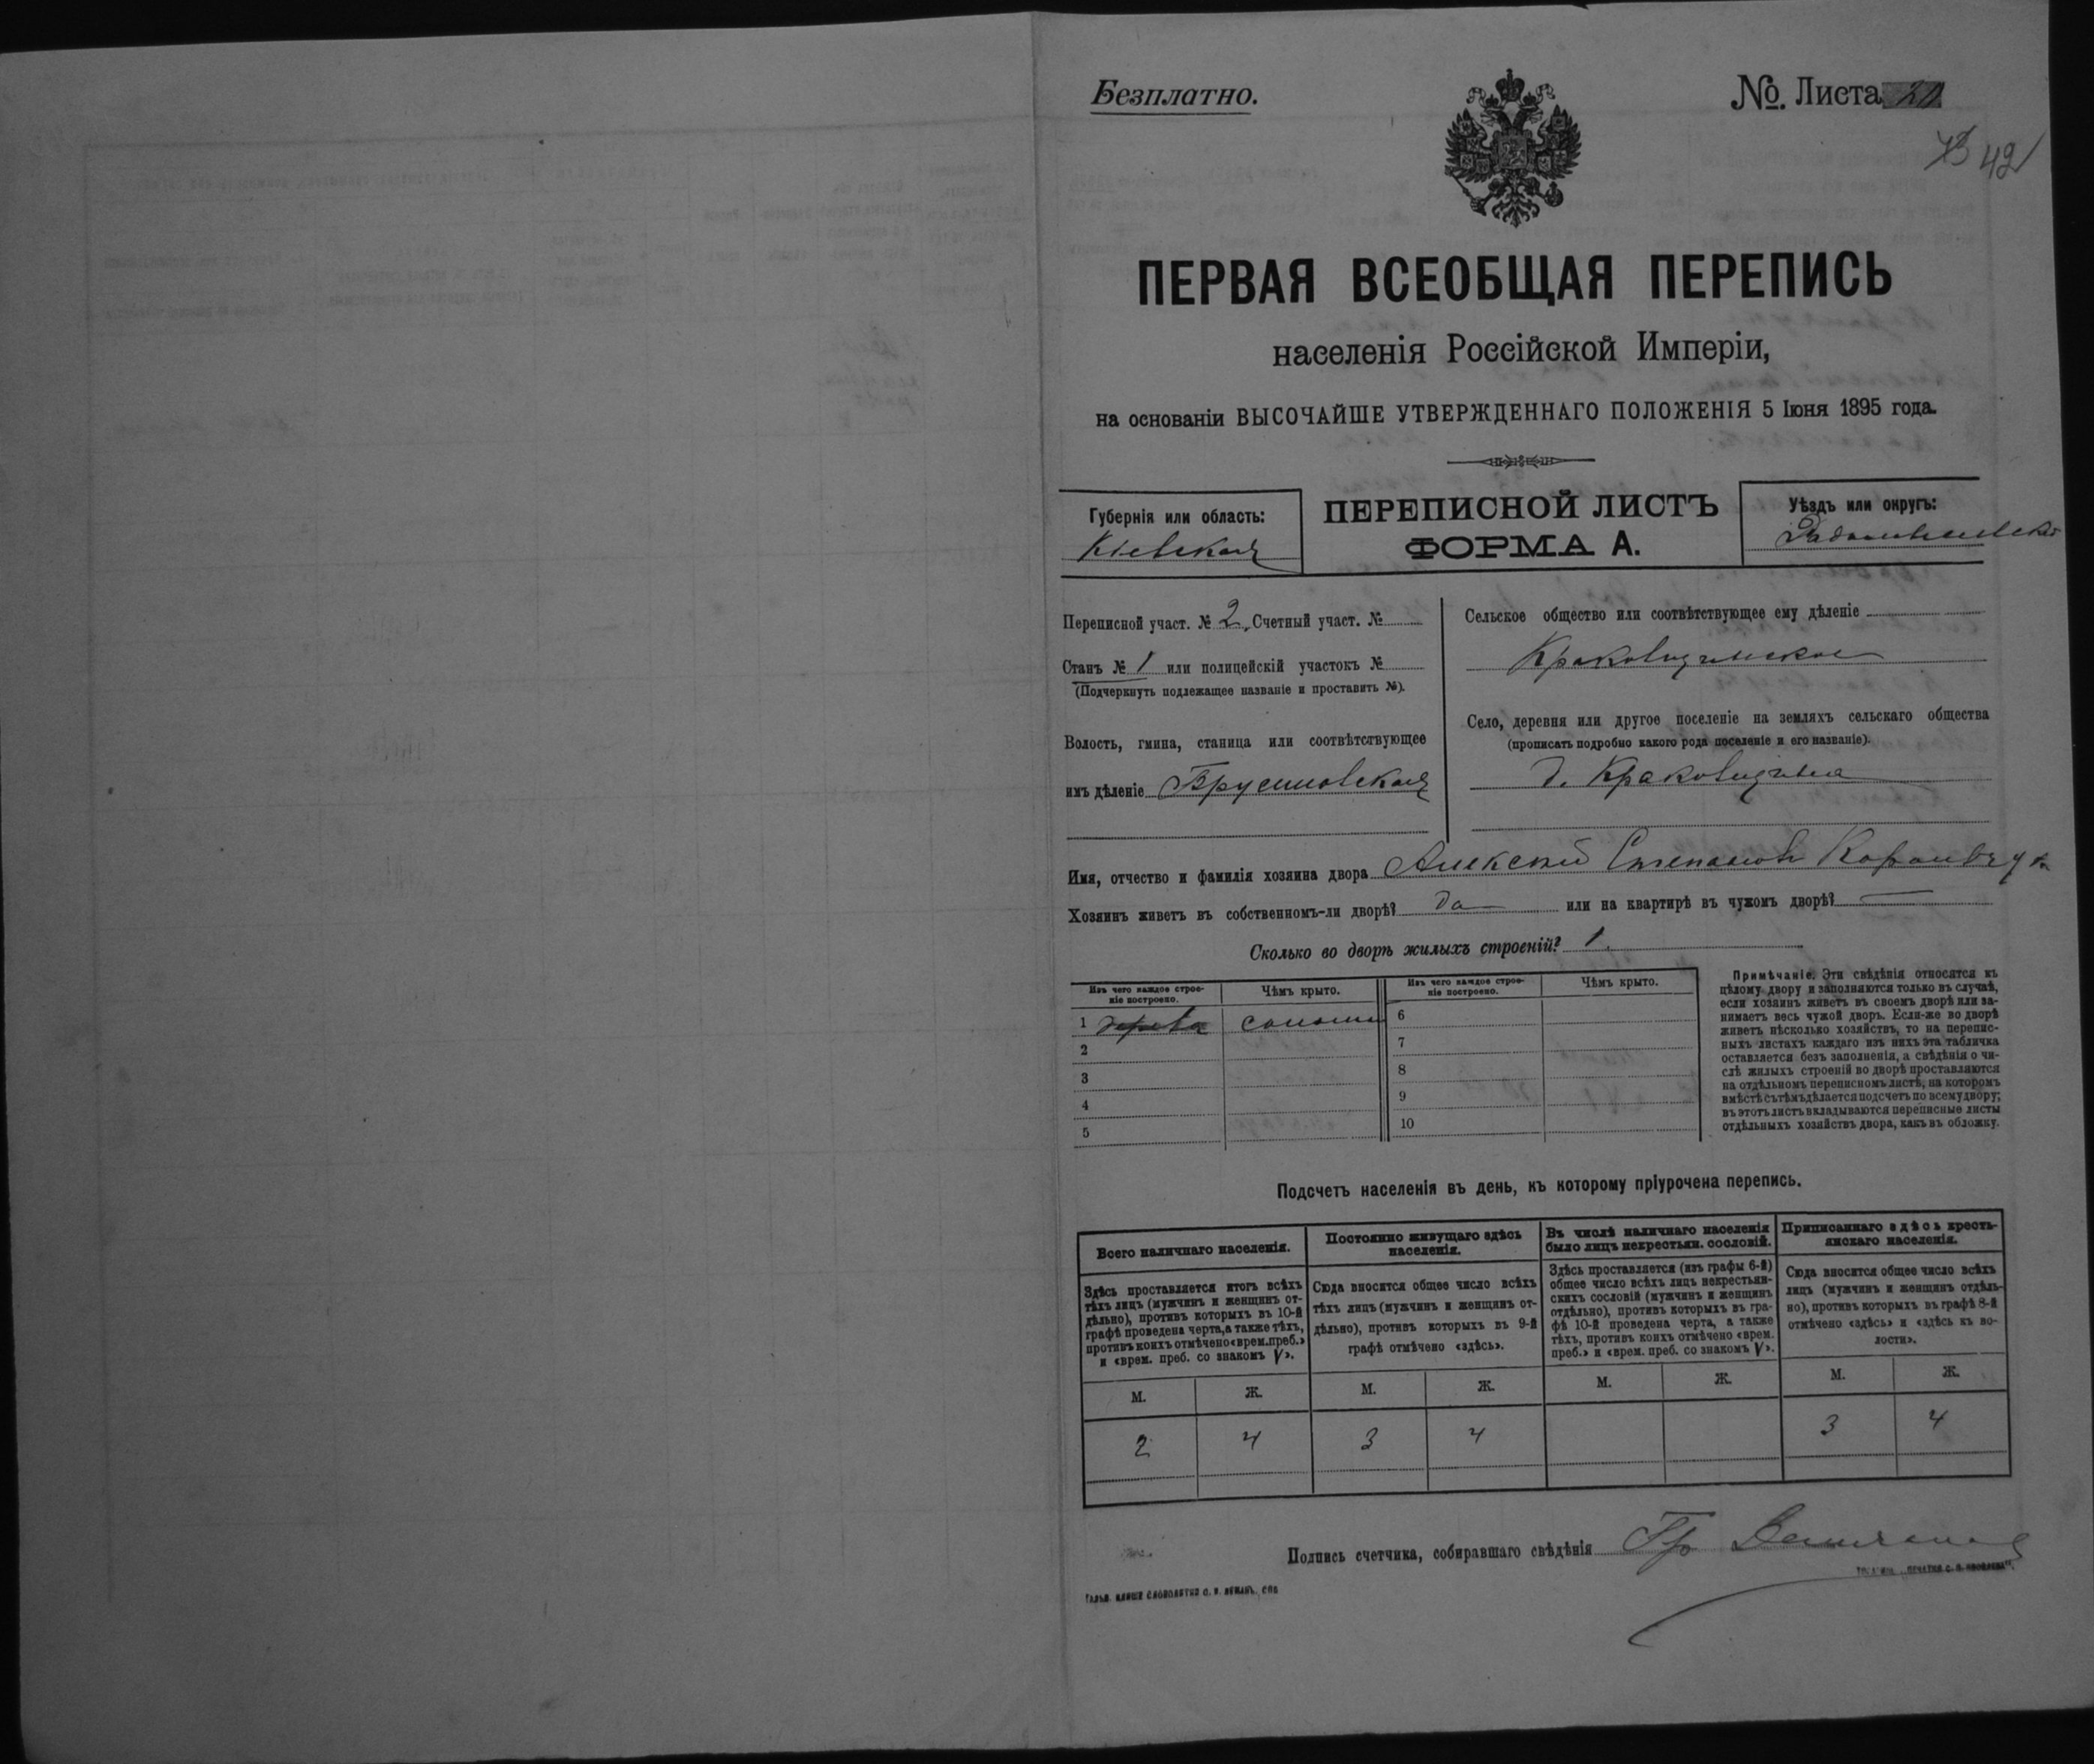 Безплатно.
№. Листа 20
42
ПЕРВАЯ ВСЕОБЩАЯ ПЕРЕПИСЬ
населенія Россійской Имперіи,
на основаніи ВЫСОЧАЙШЕ УТВЕРЖДЕННАГО ПОЛОЖЕНІЯ 5 Іюня 1895 года.
Губернія или область:
Кіевская
ПЕРЕПИСНОЙ ЛИСТЪ
ФОРМА А.
Уѣздъ или округъ:
Радомысльскій
Переписной участ. № 2, Счетный участ. №
Станъ № 1 или полицейскій участокъ №
(Подчеркнуть подлежащее названіе и проставить №).
Волость, гмина, станица или соотвѣтствующее
имъ дѣленіе Брусиловская
Сельское общество или соотвѣтствующее ему дѣленіе
Краковщинское
Село, деревня или другое поселеніе на земляхъ сельскаго общества
(прописать подробно какого рода поселеніе и его названіе).
д. Краковщина
Имя, отчество и фамилія хозяина двора Алексѣй Степановъ
Хозяинъ живетъ въ собственномъ-ли дворѣ? да или на квартирѣ въ чужомъ дворѣ?
Сколько во дворѣ жилыхъ строеній? 1.
Изъ чего каждое строе-
ніе построено.
Чѣмъ крыто.
Изъ чего каждое строе-
ніе построено.
Чѣмъ крыто.
1 дерева соломы 6
2 7
3 8
4 9
5 10
Примѣчаніе. Эти свѣдѣнія относятся къ
цѣлому двору и заполняются только въ случаѣ,
если хозяинъ живетъ въ своемъ дворѣ или за-
нимаетъ весь чужой дворъ. Если-же во дворѣ
живетъ нѣсколько хозяйствъ, то на перепис-
ныхъ листахъ каждаго изъ нихъ эта табличка
оставляется безъ заполненія, а свѣдѣнія о чи-
слѣ жилыхъ строеній во дворѣ проставляются
на отдѣльномъ переписномъ листѣ, на которомъ
вмѣстѣ съ тѣмъ дѣлается подсчетъ по всему двору;
въ этотъ листъ вкладываются переписные листы
отдѣльныхъ хозяйствъ двора, какъ въ обложку.
Подсчетъ населенія въ день, къ которому пріурочена перепись.
Всего наличнаго населенія.
Здѣсь проставляется итогъ всѣхъ
тѣхъ лицъ (мужчинъ и женщинъ от-
дѣльно), противъ которыхъ въ 10-й
графѣ проведена черта, а также тѣхъ,
противъ коихъ отмѣчено «врем. преб.»
и «врем. преб. со знакомъ V».
Постоянно живущаго здѣсь
населенія.
Сюда вносится общее число всѣхъ
тѣхъ лицъ (мужчинъ и женщинъ от-
дѣльно), противъ которыхъ въ 9-й
графѣ отмѣчено «здѣсь».
Въ числѣ наличнаго населенія
было лицъ некрестьян. сословій.
Здѣсь проставляется (изъ графы 6-й)
общее число всѣхъ лицъ некрестьян-
скихъ сословій (мужчинъ и женщинъ
отдѣльно), противъ которыхъ въ гра-
фѣ 10-й проведена черта, а также
тѣхъ, противъ коихъ отмѣчено «врем.
преб.» и «врем. преб. со знакомъ V».
Приписаннаго здѣсь кресть-
янскаго населенія.
Сюда вносится общее число всѣхъ
лицъ (мужчинъ и женщинъ отдѣль-
но), противъ которыхъ въ графѣ 8-й
отмѣчено «здѣсь» и «здѣсь къ во-
лости».
М. Ж. М. Ж. М. Ж. М. Ж.
2 4 3 4 3 4
Подпись счетчика, собиравшаго свѣдѣнія